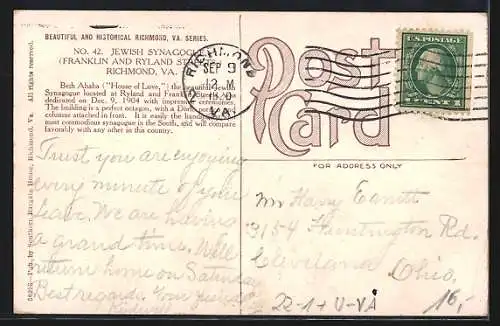 BEAUTIFUL AND HISTORICAL RICHMOND, VA. SERIES.
NO. 42. JEWISH SYNAGOGUE
(FRANKLIN AND RYLAND ST
RICHMOND, VA.
Beth Ahaba ("House of Love,") the beautiful Jewish
Synagogue located at Ryland and Franklin Streets,
dedicated on Dec. 9, 1904 with impressive ceremonies.
The building is a perfect octagon, with a Doric
columns attached in front. It is easily the handsomest
most commodious synagogue in the South, and will compare
favorably with any other in this country.
All rights reserved.
Pub. by Southern Bargain House, Richmond, Va.
RICHMOND
SEP 9
2 M
VA.
Post
Card
FOR ADDRESS ONLY
U.S. POSTAGE
1 CENT 1
Trust you are enjoying
every minute of your
leave. We are having
a grand time. Will
return home on Saturday
Best regards. Your friend
Mr Harry
3154 Huntington Rd.
Cleveland
Ohio,
22-1+U-VA
16,-